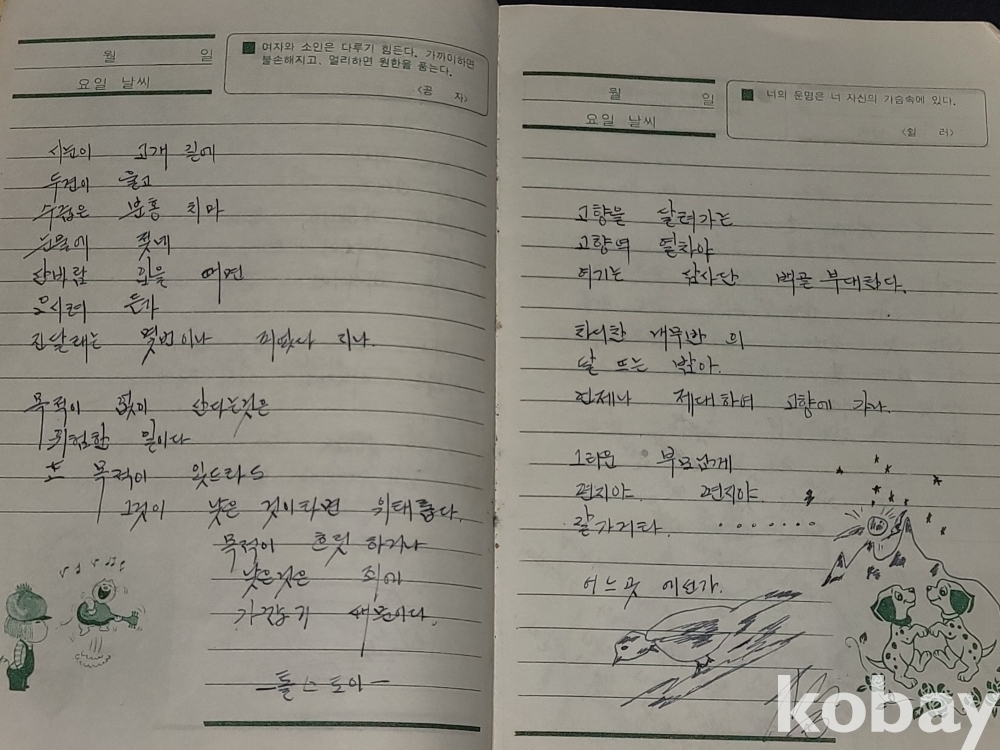 월 일
요일 날씨
여자와 소인은 다루기 힘든다. 가까이하면
불손해지고, 멀리하면 원한을 품는다.
<공 자>
고개 길에
두견이 울고
수집은 분홍 치마
눈물에 젖네
산바람 꽃을
오시려 는가
진달래는 몇번이나 피었나 지나.
목적이 없이 산다는것은
위험한 일이다
또 목적이 있드라도
그것이 낮은 것이라면 위태롭다.
목적이 흐릿 하거나
낮은것은 죄에
가깝기 때문이다.
-톨스토이-
월 일
요일 날씨
너의 운명은 너 자신의 가슴속에 있다.
<쉴 러>
고향을 달려가는
고향역 열차야
여기는 삼사단 백골부대란다.
내무반 의
달 뜨는 밤아.
언제나 제대하여 고향에 가나.
그리운 부모님께
편지야. 편지야.
잘가거라. .......
어느곳 에선가.
kobay